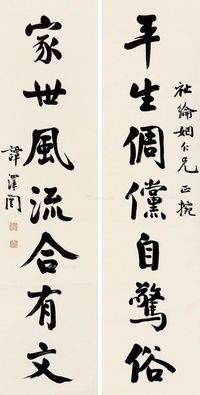 社綸姻仁兄正挽
平生倜儻自驚俗
家世風流合有文
譚澤闓